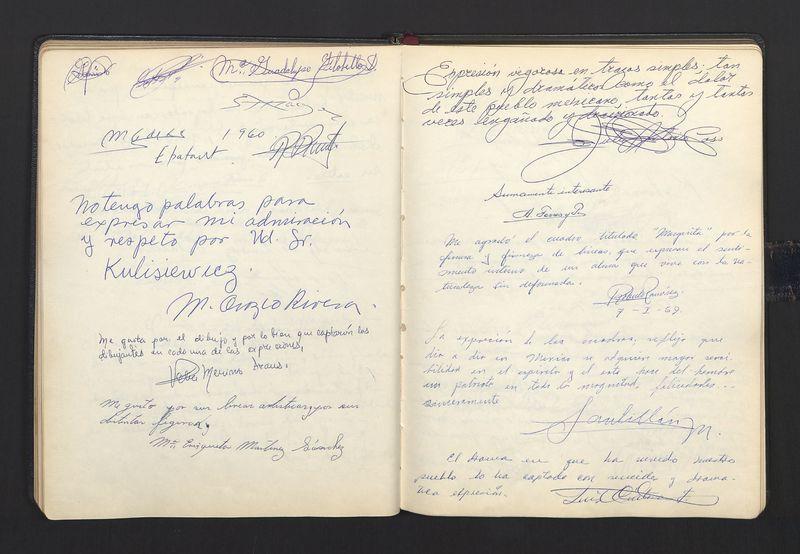 Mª Guadalupe
1960
No tengo palabras para
expresar mi admiración
y respeto por Vd. Sr.
Kulisiewicz.
M. Orozco Rivera.
Me gusta por el dibujo y por lo bien que captarón los
dibujantes en cada una de las expresiones.
Mariano
Me gusto por sus lineas artisticas y por sus
distintas figuras.
Mª. Enriqueta Martinez Sánchez
Expresión vigorosa en trazos simples: tan
simples y dramáticos como el dolor
de este pueblo mexicano, tantas y tantas
veces engañado y traicionado.
Sumamente interesante
Me agradó el cuadro titulado "Margarita" por la
y firmeza de lineas, que expresan el senti-
miento interno de un alma que vive con la na-
turaleza sin deformarla.
Ramírez
7-I-69.
La expresión de los cuadros, reflejo que
dia a dia en Mexico se adquiere mayor sensi-
bilidad en el espiritu y el arte hace del hombre
un patriota en toda la magnitud, felicidades...
sinceramente
El drama en que ha vivido nuestro
pueblo lo ha captado con sencilla y drama-
tica expresión.
Luis